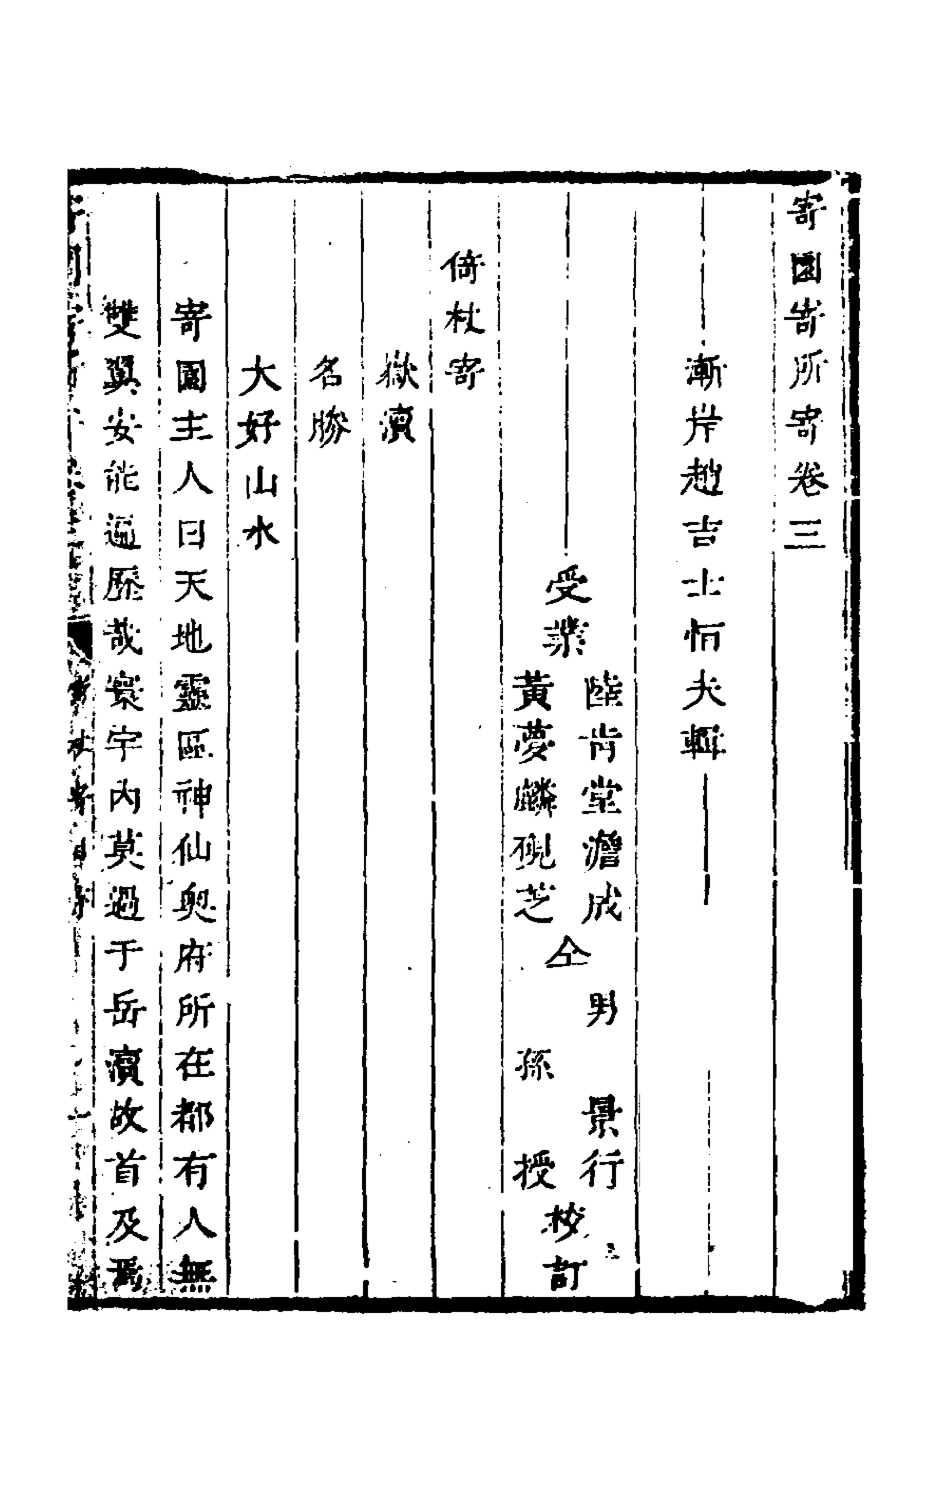 寄園寄所寄卷三
漸岸趙吉士恒夫輯
受業
陸肯堂澹成
黃夢麟硯芝
仝
男 景行
孫 授
校訂
倚杖寄
嶽瀆
名勝
大好山水
寄園主人曰天地靈區神仙奧府所在都有人無
雙翼安能遍歷哉寰宇內莫過于岳瀆故首及焉